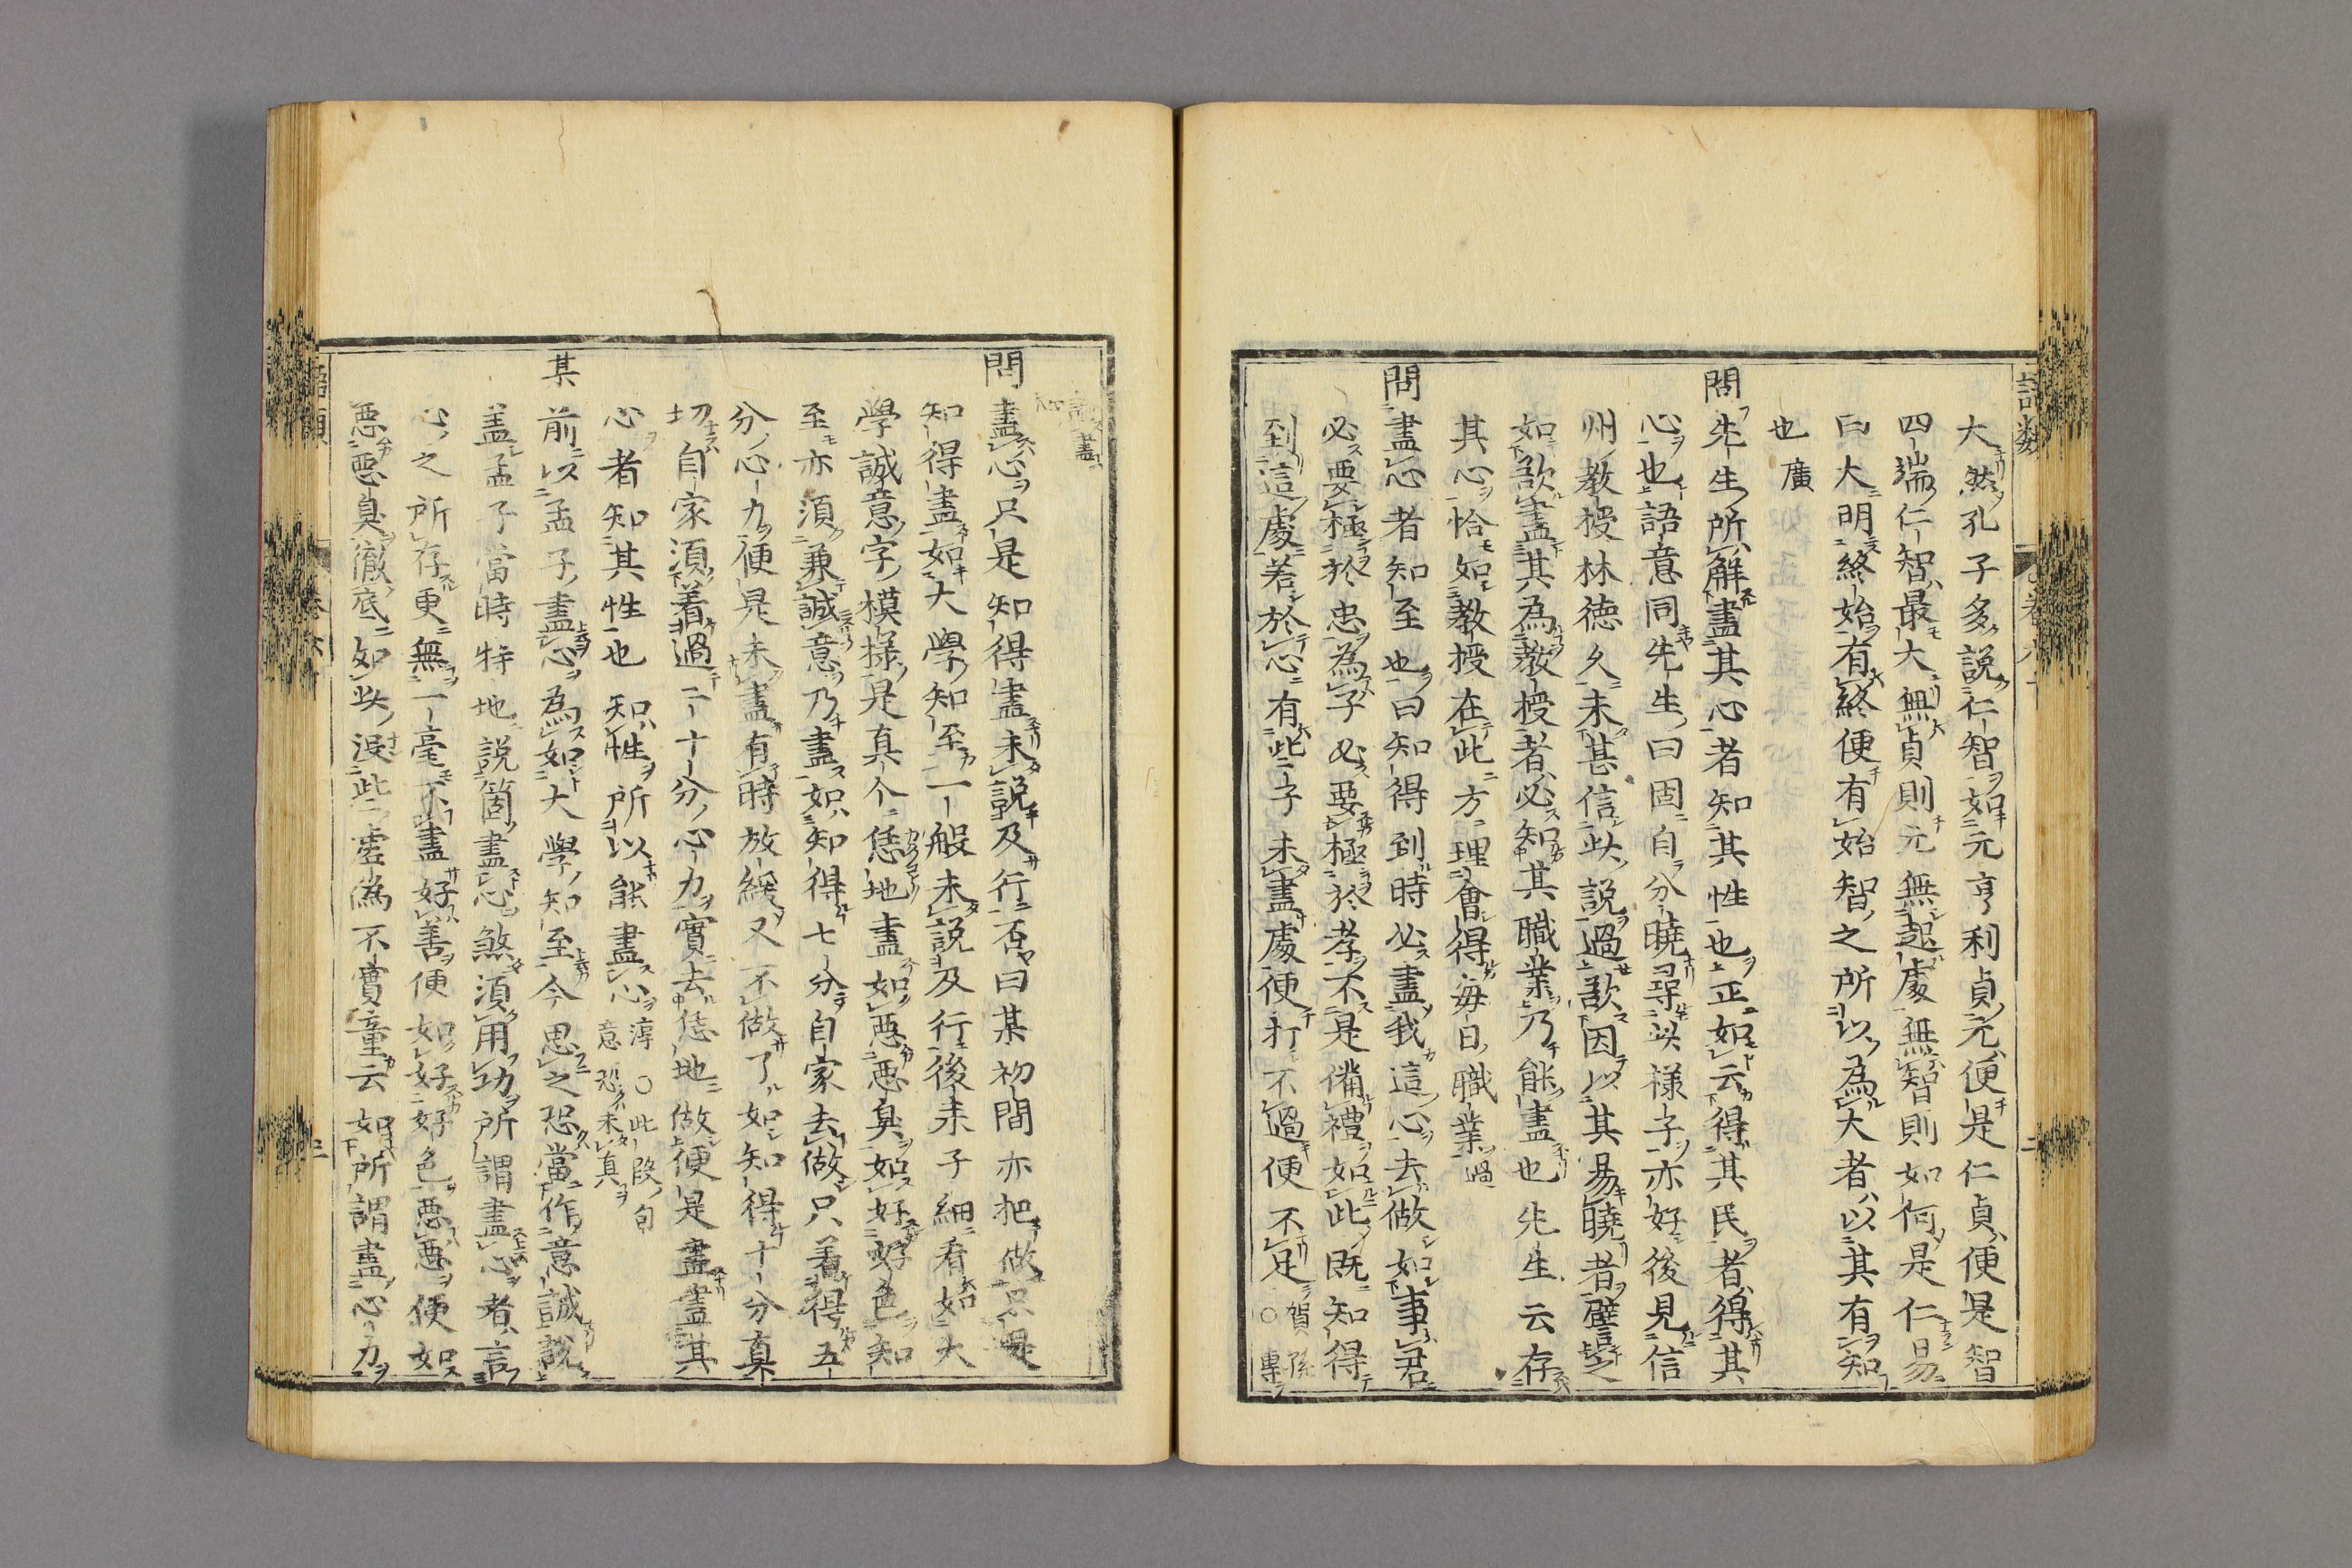 大然孔子多說仁智如元亨利貞元便是仁貞便是智
四端仁智最大無貞則元無起處無智則如何是仁易
曰大明終始有終便有始智之所以為大者以其有知
也廣
問先生所解盡其心者知其性也正如云得其民者得其
心也語意同先生曰固自分曉尋此様子亦好後見信
州教授林德久未甚信此說過欲因以其易曉者譬之
如欲盡其為教授者必知其職業乃能盡也先生云存
其心恰如教授在此方理會得每日職業過
問盡心者知至也曰知得到時必盡我這心去做如事君
必要極於忠為子必要極於孝不是備禮如此既知得
到這處若於心有些子未盡處便打不過便不足賀孫
○專
問盡心只是知得盡未說及行否曰某初間亦把做只是
知得盡如大學知至一般未說及行後来子細看如大
學誠意字模様是真个恁地盡如惡惡臭如好好色知
至亦須兼誠意乃盡如知得七分自家去做只着得五
分心力便是未盡有時放緩又不做了如知得十分真
切自家須着過二十分心力實去恁地做便是盡盡其
心者知其性也知性所以能盡心淳○此段句
意恐未真
某前以孟子盡心為如大學知至今思之恐當作意誠說
盖孟子當時特地說箇盡心煞須用功所謂盡心者言
心之所存更無一毫不盡好善便如好好色惡惡便如
惡惡臭徹底如此沒些虛偽不實童云如所謂盡心力